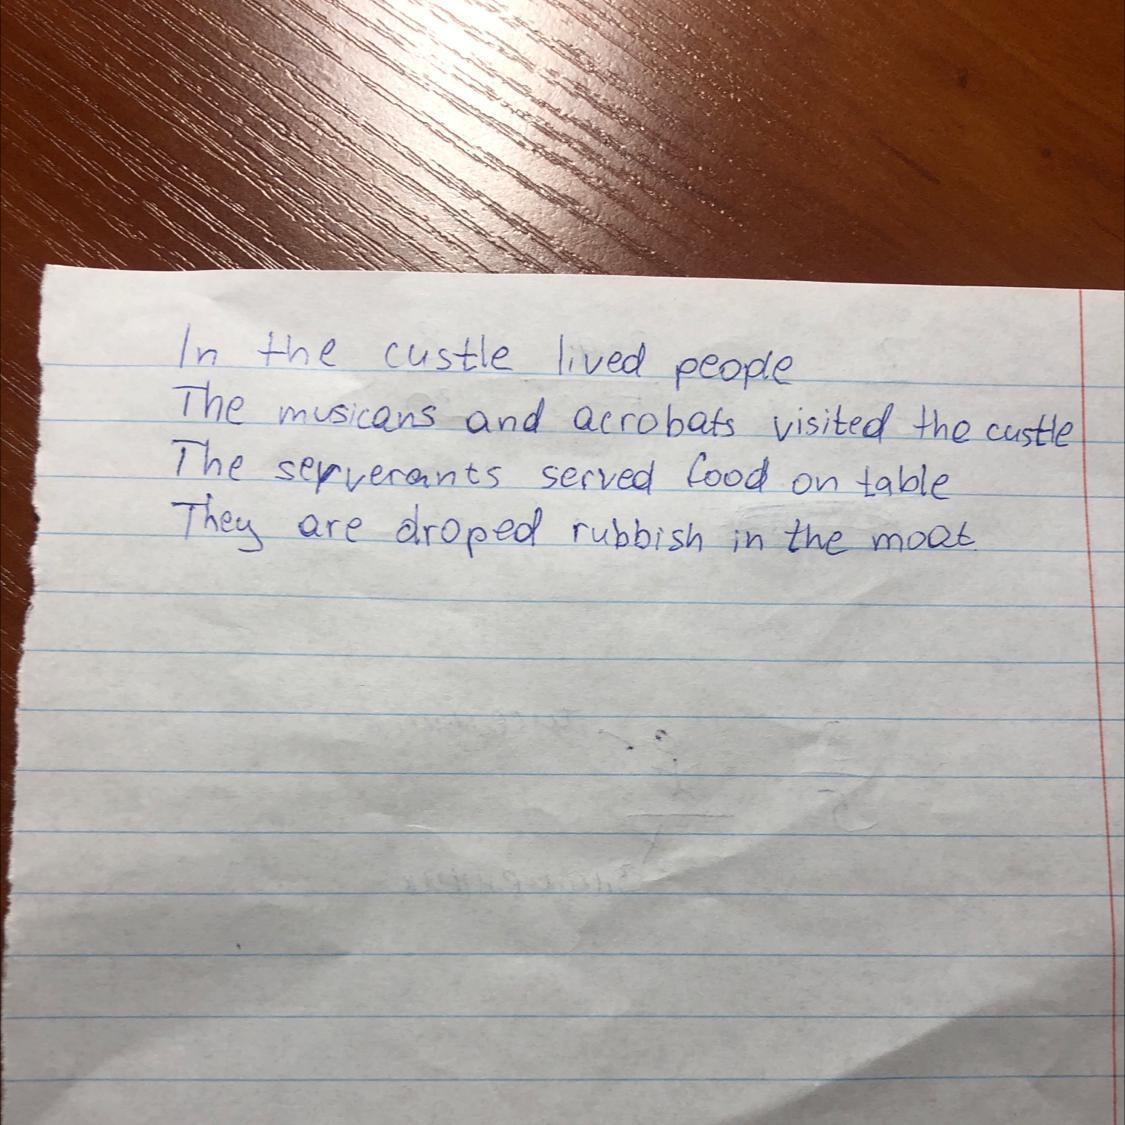 In the custle lived people
The musicans and acrobats visited the custle
The serverants served food on table
They are droped rubbish in the moat